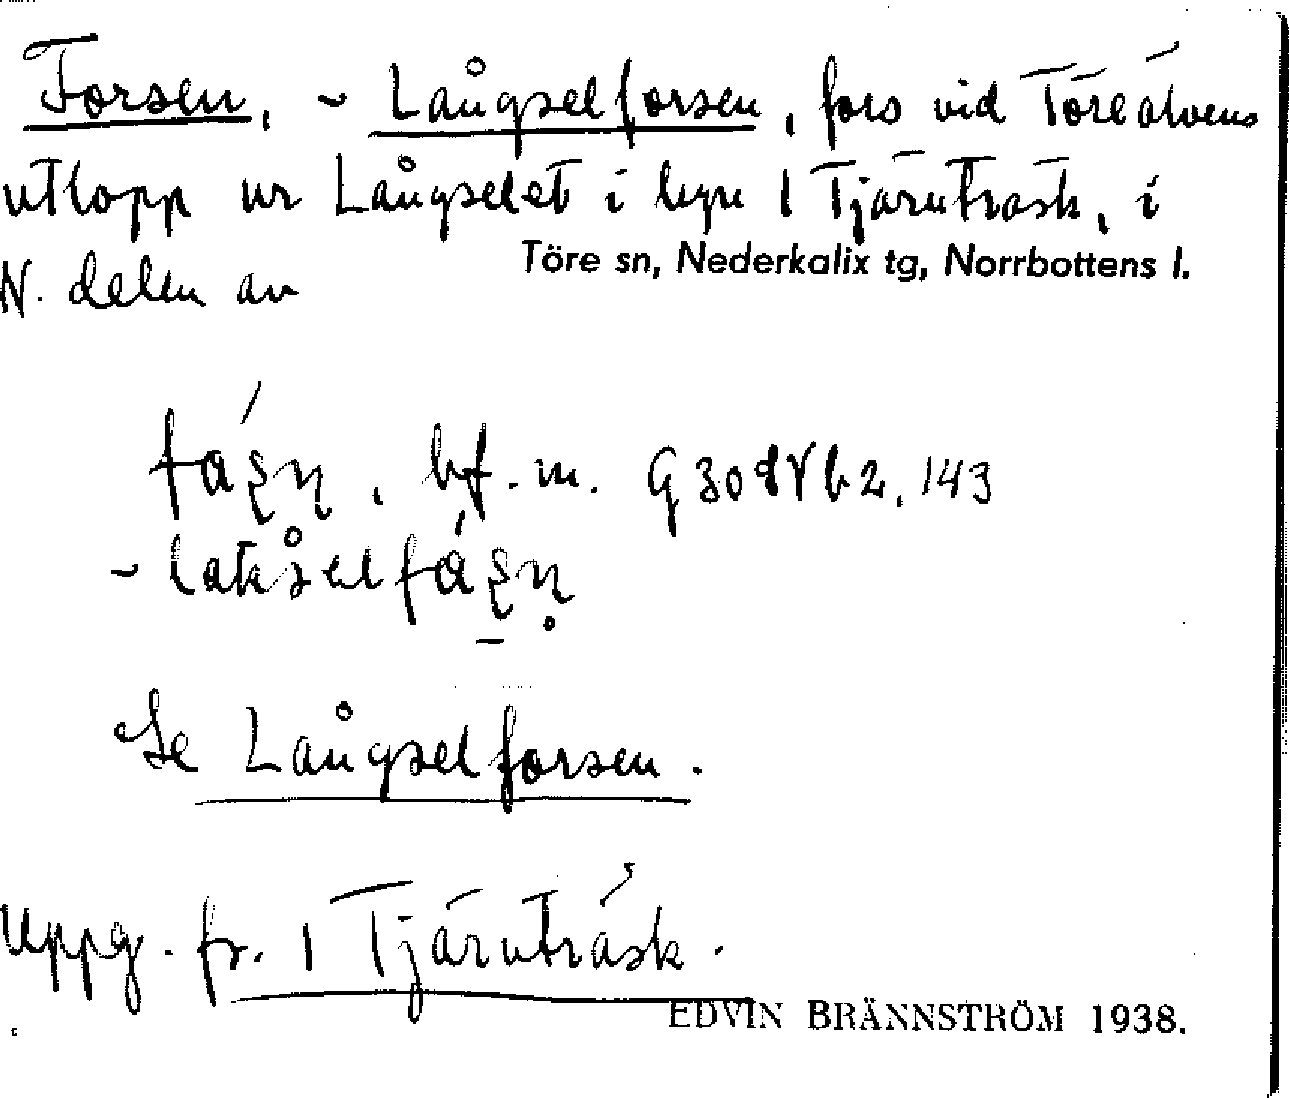 Forsen, ~ Långselforsen, fors vid Töreälvens
utlopp ur Långselet i byn 1 Tjärnträsk, i
N. delen av Töre sn, Nederkalix tg, Norrbottens l.
bf. m. 143
~
Se Långselforsen.
Uppg. fr. 1 Tjärnträsk.
EDVIN BRÄNNSTRÖM 1938.